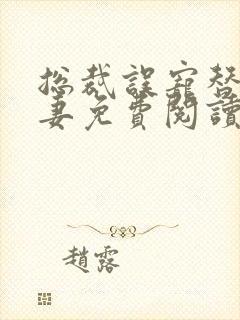 總裁誤寵替
妻免費閱讀
趙露